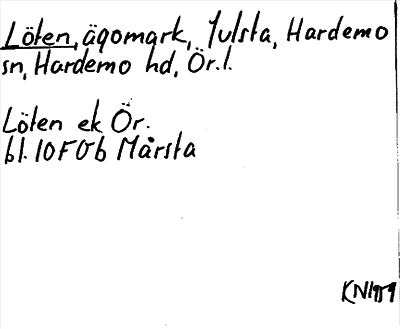 Löten, ägomark, Julsta, Hardemo
sn, Hardemo hd, Ör.l.
Löten ek Ör.
bl. 10F0b Mårsta